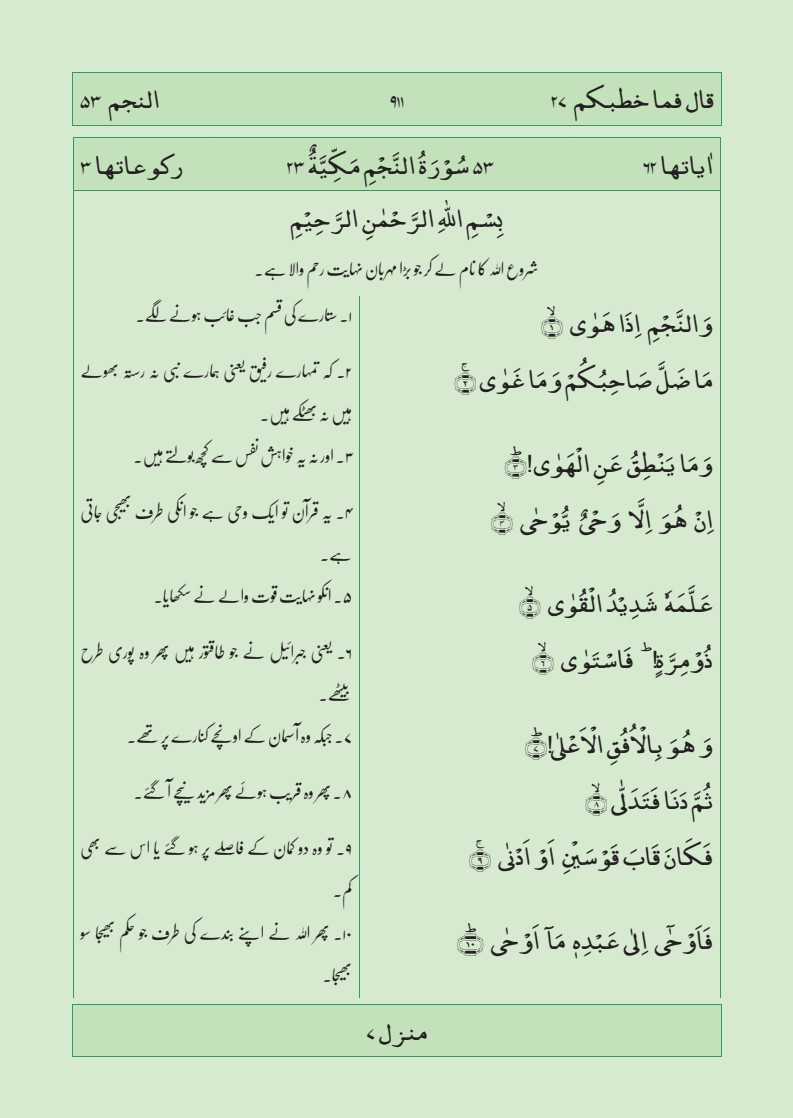 قال فما خطبكم ۲۷ ۹۱۱ النجم ۵۳
اٰیاتھا ۶۲ ۵۳ سُوۡرَۃُ النَّجۡمِ مَکِّیَّۃٌ ۲۳ رکوعاتھا ۳
بِسۡمِ اللّٰہِ الرَّحۡمٰنِ الرَّحِیۡمِ
شروع اللہ کا نام لے کر جو بڑا مہربان نہایت رحم والا ہے۔
وَ النَّجۡمِ اِذَا ہَوٰی ۙ﴿۱﴾
۱۔ ستارے کی قسم جب غائب ہونے لگے۔
مَا ضَلَّ صَاحِبُکُمۡ وَ مَا غَوٰی ۚ﴿۲﴾
۲۔ کہ تمہارے رفیق یعنی ہمارے نبی نہ رستہ بھولے
ہیں نہ بھٹکے ہیں۔
وَ مَا یَنۡطِقُ عَنِ الۡہَوٰی!ؕ﴿۳﴾
۳۔ اور نہ یہ خواہش نفس سے کچھ بولتے ہیں۔
اِنۡ ہُوَ اِلَّا وَحۡیٌ یُّوۡحٰی ۙ﴿۴﴾
۴۔ یہ قرآن تو ایک وحی ہے جو انکی طرف بھیجی جاتی
ہے۔
عَلَّمَہٗ شَدِیۡدُ الۡقُوٰی ۙ﴿۵﴾
۵۔ انکو نہایت قوت والے نے سکھایا۔
ذُوۡ مِرَّۃٍ! ؕ فَاسۡتَوٰی ۙ﴿۶﴾
۶۔ یعنی جبرائیل نے جو طاقتور ہیں پھر وہ پوری طرح
بیٹھے۔
وَ ہُوَ بِالۡاُفُقِ الۡاَعۡلٰی!ؕ﴿۷﴾
۷۔ جبکہ وہ آسمان کے اونچے کنارے پر تھے۔
ثُمَّ دَنَا فَتَدَلّٰی ۙ﴿۸﴾
۸۔ پھر وہ قریب ہوئے پھر مزید نیچے آگئے۔
فَکَانَ قَابَ قَوۡسَیۡنِ اَوۡ اَدۡنٰی ۚ﴿۹﴾
۹۔ تو وہ دو کمان کے فاصلے پر ہو گئے یا اس سے بھی
کم۔
فَاَوۡحٰۤی اِلٰی عَبۡدِہٖ مَاۤ اَوۡحٰی ﴿ؕ۱۰﴾
۱۰۔ پھر اللہ نے اپنے بندے کی طرف جو حکم بھیجا سو
بھیجا۔
منزل ۷